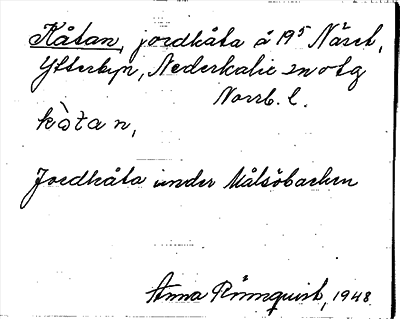 Kåtan, jordkåta å 19⁵ Näset,
Ytterbyn, Nederkalix sn o tg
Norrb. l.
kå̀tan,
Jordkåta under Målsöbacken
Anna Rönnquist, 1948.